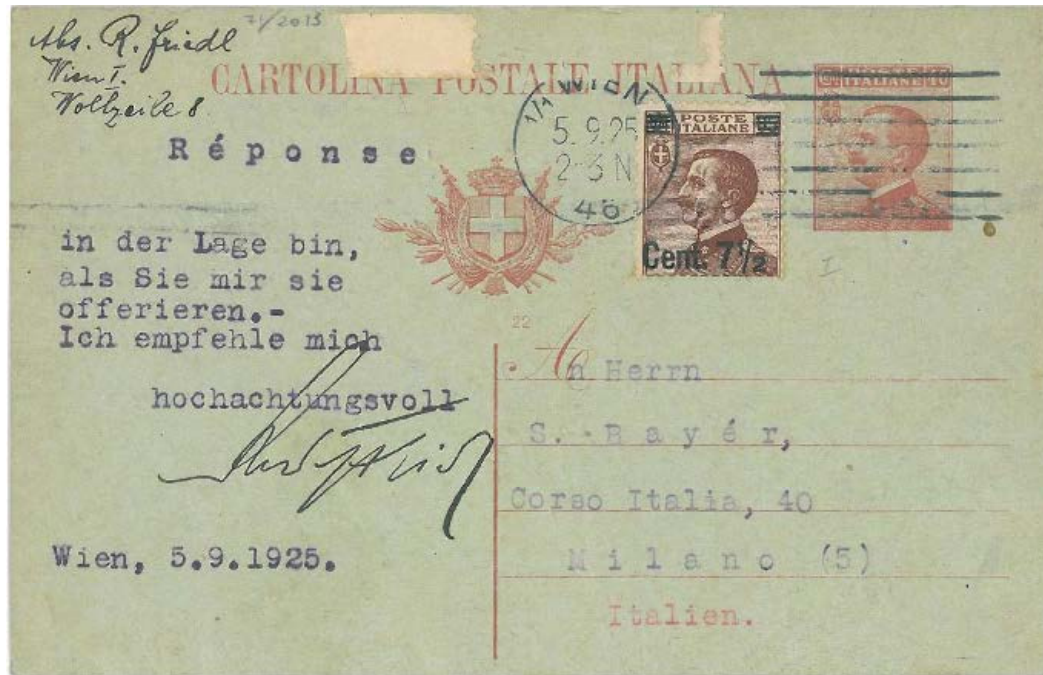 71/2013
Abs. R. Friedl
Wien I.
Wollzeile 8
CARTOLINA POSTALE ITALIANA
Réponse
1/1 WIEN
5.9.25
2-3 N
46
POSTE
ITALIANE
Cent. 7½
ITALIANE 10
in der Lage bin,
als Sie mir sie
offerieren.-
Ich empfehle mich
hochachtungsvoll
Wien, 5.9.1925.
I
22
An Herrn
S. Bayér,
Corso Italia, 40
Milano (5)
Italien.